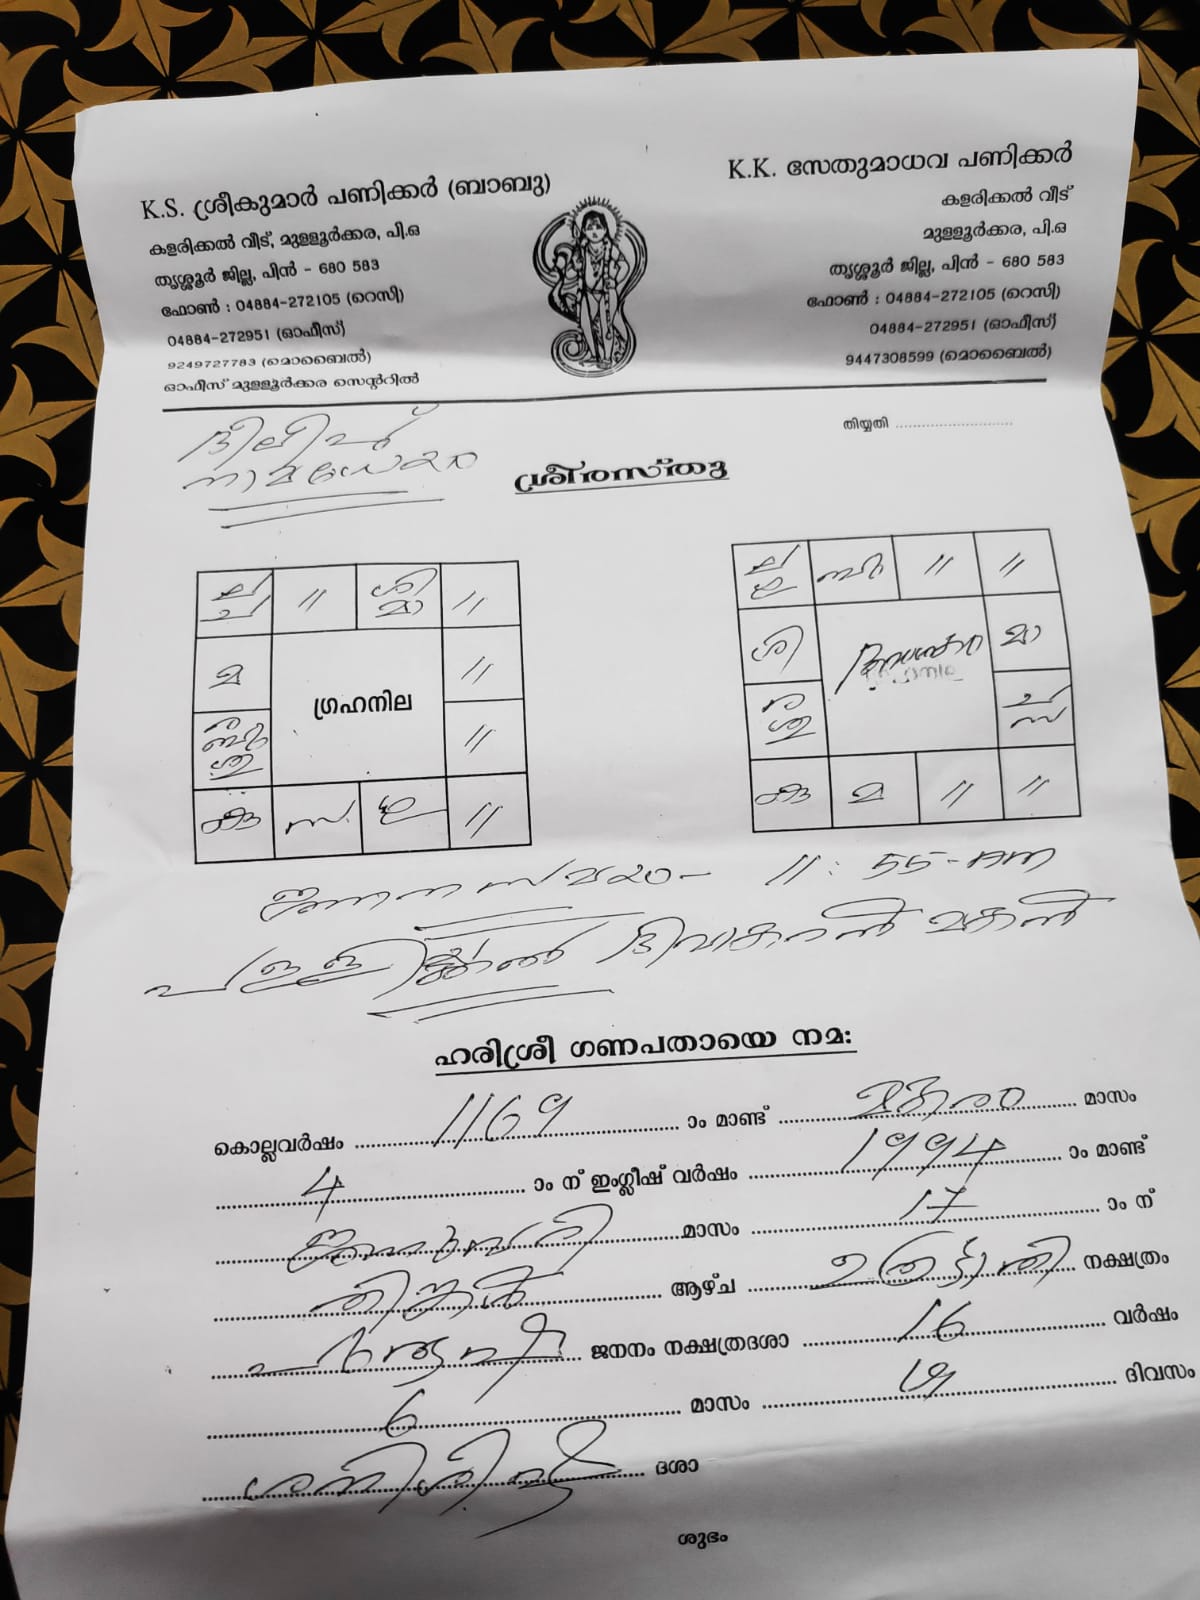 K.S. ശ്രീകുമാർ പണിക്കർ (ബാബു)
കളരിക്കൽ വീട്, മുള്ളൂർക്കര, പി.ഒ
തൃശ്ശൂർ ജില്ല, പിൻ - 680 583
ഫോൺ : 04884-272105 (റെസി)
04884-272951 (ഓഫീസ്)
9249727783 (മൊബൈൽ)
ഓഫീസ് മുള്ളൂർക്കര സെന്ററിൽ
K.K. സേതുമാധവ പണിക്കർ
കളരിക്കൽ വീട്
മുള്ളൂർക്കര, പി.ഒ
തൃശ്ശൂർ ജില്ല, പിൻ - 680 583
ഫോൺ : 04884-272105 (റെസി)
04884-272951 (ഓഫീസ്)
9447308599 (മൊബൈൽ)
തിയ്യതി
ദിലീപ്
നാമധേയം
ശ്രീരസ്തു
ല ച // ശി മാ //
മ ഗ്രഹനില //
//
കു സ ഗു //
ല ഗു ബു // //
ശി മാ
കു മ // //
ജനന സമയം - 11:55-AM
ദിവാകരൻ മകൻ
ഹരിശ്രീ ഗണപതായെ നമ:
കൊല്ലവർഷം 1169 ാം മാണ്ട് മകരം മാസം
4 ാം ന് ഇംഗ്ലീഷ് വർഷം 1994 ാം മാണ്ട്
ജനുവരി മാസം 17 ാം ന്
തിങ്കൾ ആഴ്ച ഉത്രട്ടാതി നക്ഷത്രം
ജനനം നക്ഷത്രദശാ 16 വർഷം
6 മാസം ദിവസം
ദശാ
ശുഭം